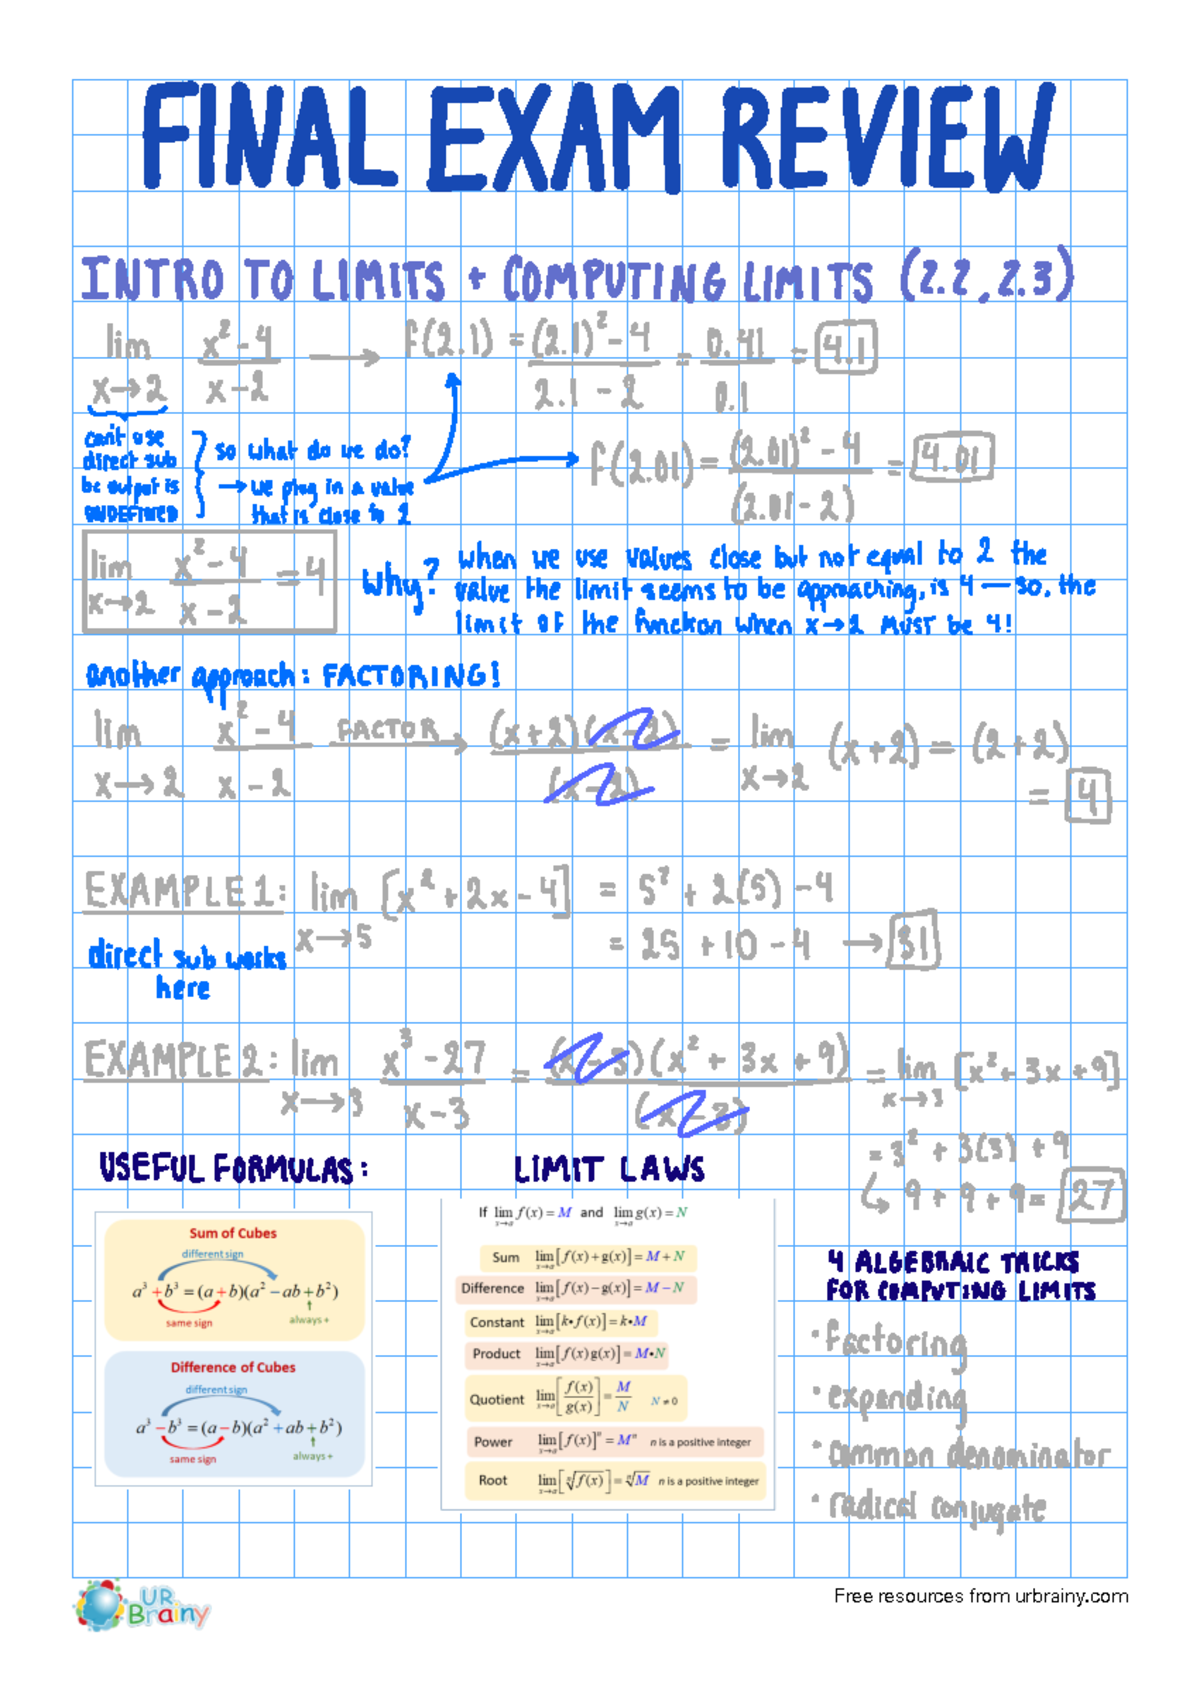 FINAL EXAM REVIEW
INTRO TO LIMITS + COMPUTING LIMITS (2.2, 2.3)
lim x→2 x² - 4 / x - 2 → f(2.1) = (2.1)² - 4 / 2.1 - 2 = 0.41 / 0.1 = 4.1
can't use
direct sub
bc output is
UNDEFINED
so what do we do?
→ we plug in a value
that is close to 2
f(2.01) = (2.01)² - 4 / (2.01 - 2) = 4.01
lim x→2 x² - 4 / x - 2 = 4
Why?
when we use values close but not equal to 2 the
value the limit seems to be approaching, is 4 — so, the
limit OF the function when x→2 MUST be 4!
another approach: FACTORING!
lim x→2 x² - 4 / x - 2 FACTOR → (x+2)(x-2) / (x-2) = lim x→2 (x+2) = (2+2)
= 4
EXAMPLE 1: lim x→5 [x² + 2x - 4] = 5² + 2(5) - 4
= 25 + 10 - 4 → 31
direct sub works
here
EXAMPLE 2: lim x→3 x³ - 27 / x - 3 = (x-3)(x² + 3x + 9) / (x-3) = lim x→3 [x² + 3x + 9]
= 3² + 3(3) + 9
↳ 9 + 9 + 9 = 27
USEFUL FORMULAS:
Sum of Cubes
different sign
a³ + b³ = (a + b)(a² - ab + b²)
same sign
always +
Difference of Cubes
different sign
a³ - b³ = (a - b)(a² + ab + b²)
same sign
always +
LIMIT LAWS
If lim x→a f(x) = M and lim x→a g(x) = N
Sum lim x→a [f(x) + g(x)] = M + N
Difference lim x→a [f(x) - g(x)] = M - N
Constant lim x→a [k•f(x)] = k•M
Product lim x→a [f(x)g(x)] = M•N
Quotient lim x→a [f(x) / g(x)] = M / N N ≠ 0
Power lim x→a [f(x)]ⁿ = Mⁿ n is a positive integer
Root lim x→a [ⁿ√f(x)] = ⁿ√M n is a positive integer
4 ALGEBRAIC TRICKS
FOR COMPUTING LIMITS
• factoring
• expanding
• common denominator
• radical conjugate
UR
Brainy
Free resources from urbrainy.com